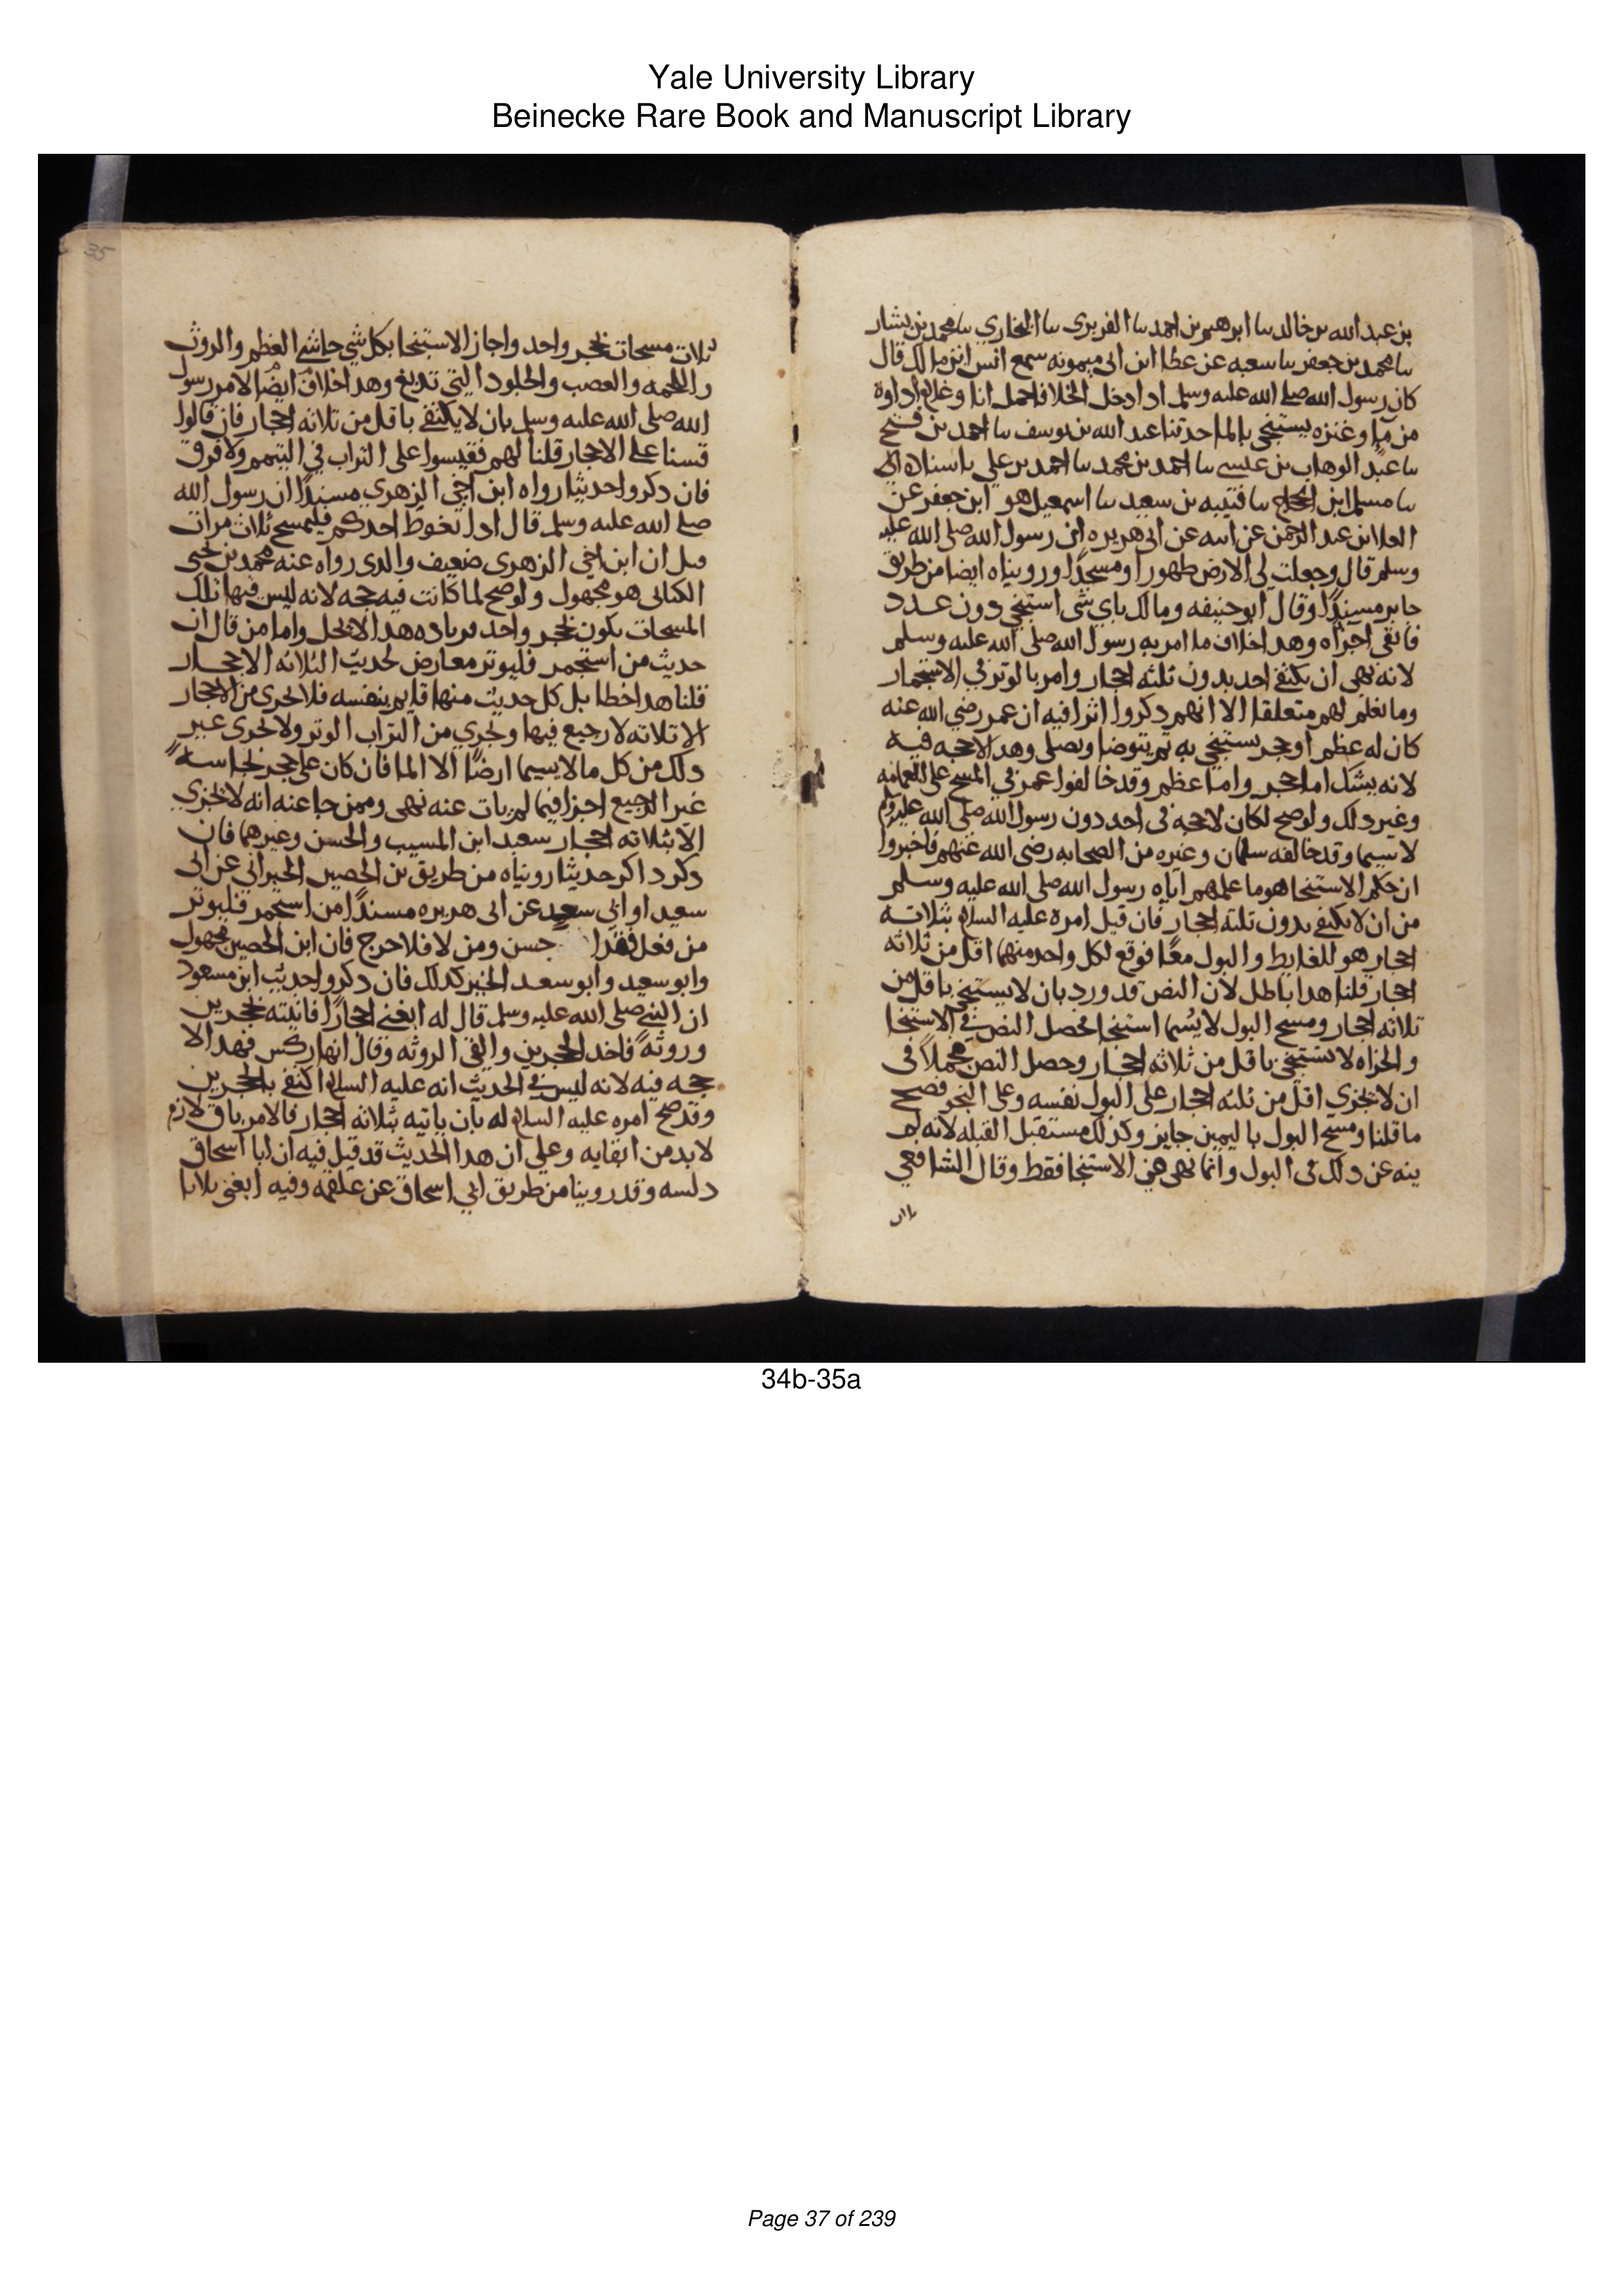 Yale University Library
Beinecke Rare Book and Manuscript Library
بن عبد الله بن خالد سا ابرهيم بن احمد سا الفربري سا البخاري سا محمد بن بشار
سا محمد بن جعفر سا سعبه عن عطا ابن ابى ميمونه سمع انس ابن مالك قال
كان رسول الله صلى الله عليه وسلم ادا دخل الخلا فاحمل انا وغلام اداوة
من ما وعنزه يستنجى بالما حدثنا عبد الله بن يوسف سا احمد بن فتح
سا عبد الوهاب بن عيسى سا احمد بن محمد سا احمد بن علي
سا مسلم ابن الحجاج سا قتيبه بن سعيد سا اسمعيل هو ابن جعفر عن
العلا بن عبد الرحمن عن ابيه عن ابى هريره ان رسول الله صلى الله عليه
وسلم قال وجعلت لى الارض طهورا ومسجدًا وروبناه ايضا من طريق
جابر مسندًا وقال ابو حنيفه ومالك باي شى استنجى دون عدد
فانقى اجزاه وهدا خلاف ما امر به رسول الله صلى الله عليه وسلم
لانه نهى ان يكتفى احد بدون ثلثه احجار وامر بالوتر في الاستجمار
وما نعلم لهم متعلقا الا انهم دكروا اثرا فيه ان عمر رضي الله عنه
كان له عظم او حجر يستنجي به ثم يتوضا ويصلى وهدا لا حجه فيه
لانه بشك اما حجر واما عظم وقد خالفوا عمر في المسح على العمامه
وغير دلك ولو صح لكان لا حجه فى احد دون رسول الله صلى الله عليه وسلم
لا سيما وقد خالفه سلمان وغيره من الصحابه رضى الله عنهم فاخبروا
ان حكم الاستنجا هو ما علمهم اياه رسول الله صلى الله عليه وسلم
من ان لا يكتفى بدون ثلثه احجار فان قيل امره عليه السلام بثلاثه
احجار هو للغايط والبول معًا فوقع لكل واحد منهما اقل من ثلاثه
احجار قلنا هدا باطل لان النص قد ورد بان لا يستنجى باقل من
ثلاثه احجار ومسح البول لا يسما استنجا فحصل النص في الاستنجا
والخراه لا يستنجى باقل من ثلاثه احجار وحصل النص مجملاً فى
ان لا يجزي اقل من ثلثه احجار على البول نفسه وعلى النجو فصح
ما قلنا ومسح البول باليمين جايز وكذلك مستقبل القبله لانه لم
ينه عن دلك فى البول وانما نهى فى الاستنجا فقط وقال الشافعي
35
ثلاث مسحات بحجر واحد واجاز الاستنجا بكل شى حاشى العظم والروث
والحممه والعصب والجلود التي تدبغ وهدا خلاف ايضًا لامر رسول
الله صلى الله عليه وسلم بان لا يكتفى باقل من ثلاثه احجار فان قالوا
قسنا على الاحجار قلنا لهم فقيسوا على التراب في التيمم ولا فرق
فان دكروا حديثا رواه ابن اخي الزهري مسندًا ان رسول الله
صلى الله عليه وسلم قال ادا تغوط احدكم فليمسح ثلاث مرات
قيل ان ابن اخي الزهرى ضعيف والدى رواه عنه محمد بن يحيى
الكنانى هو مجهول ولو صح لما كانت فيه حجه لانه ليس فيها تلك
المسحات تكون بحجر واحد فزياده هدا لا تحل واما من قال ان
حديث من استجمر فليوتر معارض لحديث الثلاثه الاحجار
قلنا هدا خطا بل كل حديث منها قايم بنفسه فلا يجزى من الاحجار
الا ثلاثه لا رجيع فيها ويجزي من التراب الوتر ولا يجزى غير
دلك من كل ما لا يسما ارضًا الا الما فان كان على حجر نجاسه
غير الرجيع اجزا فيما لم يات عنه نهى وممن جا عنه انه لا يجزي
الا بثلاثه احجار سعيد ابن المسيب والحسن وغيرهما فان
دكر داكر حديثا رويناه من طريق بن الحصين الحبراني عن ابى
سعيد او ابي سعد عن ابى هريره مسندًا من استجمر فليوتر
من فعل فقد احسن ومن لا فلا حرج فان ابن الحصين مجهول
وابو سعيد وابو سعد الخير كدلك فان دكروا حديث ابن مسعود
ان النبي صلى الله عليه وسلم قال له ابغنى احجارًا فاتيته بحجرين
وروثه فاخد الحجرين والقى الروثه وقال انها ركس فهدا لا
حجه فيه لانه ليس في الحديث انه عليه السلام اكتفى بالحجرين
وقد صح امره عليه السلام له بان ياتيه بثلاثه احجار فالامر باق لازم
لا بد من ابقايه وعلى ان هدا الحديث قد قيل فيه ان ابا اسحاق
دلسه وقد روينا من طريق ابي اسحاق عن علقمه وفيه ابغنى ثلاثا
34b-35a
Page 37 of 239